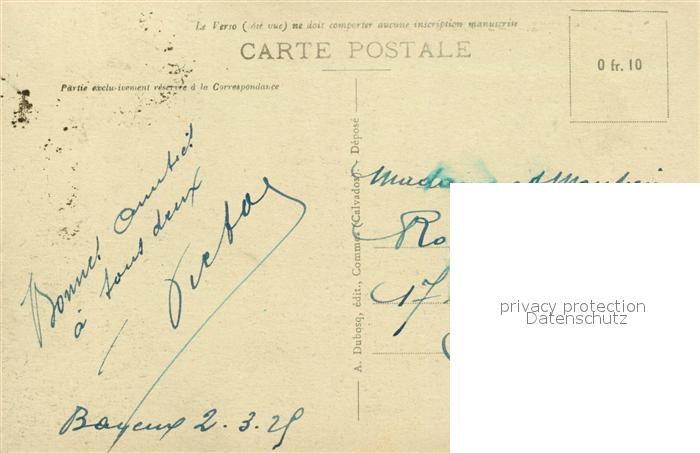 Le Verso (côté vue) ne doit comporter aucune inscription manuscrite
CARTE POSTALE
0 fr. 10
Partie exclusivement réservée à la Correspondance
Bonnes amitiés
à tous deux
Victor
Bayeux 2.3.25
A. Dubosq, édit., Commes (Calvados) - Déposé
Madame et Monsieur
Ro
17
privacy protection
Datenschutz